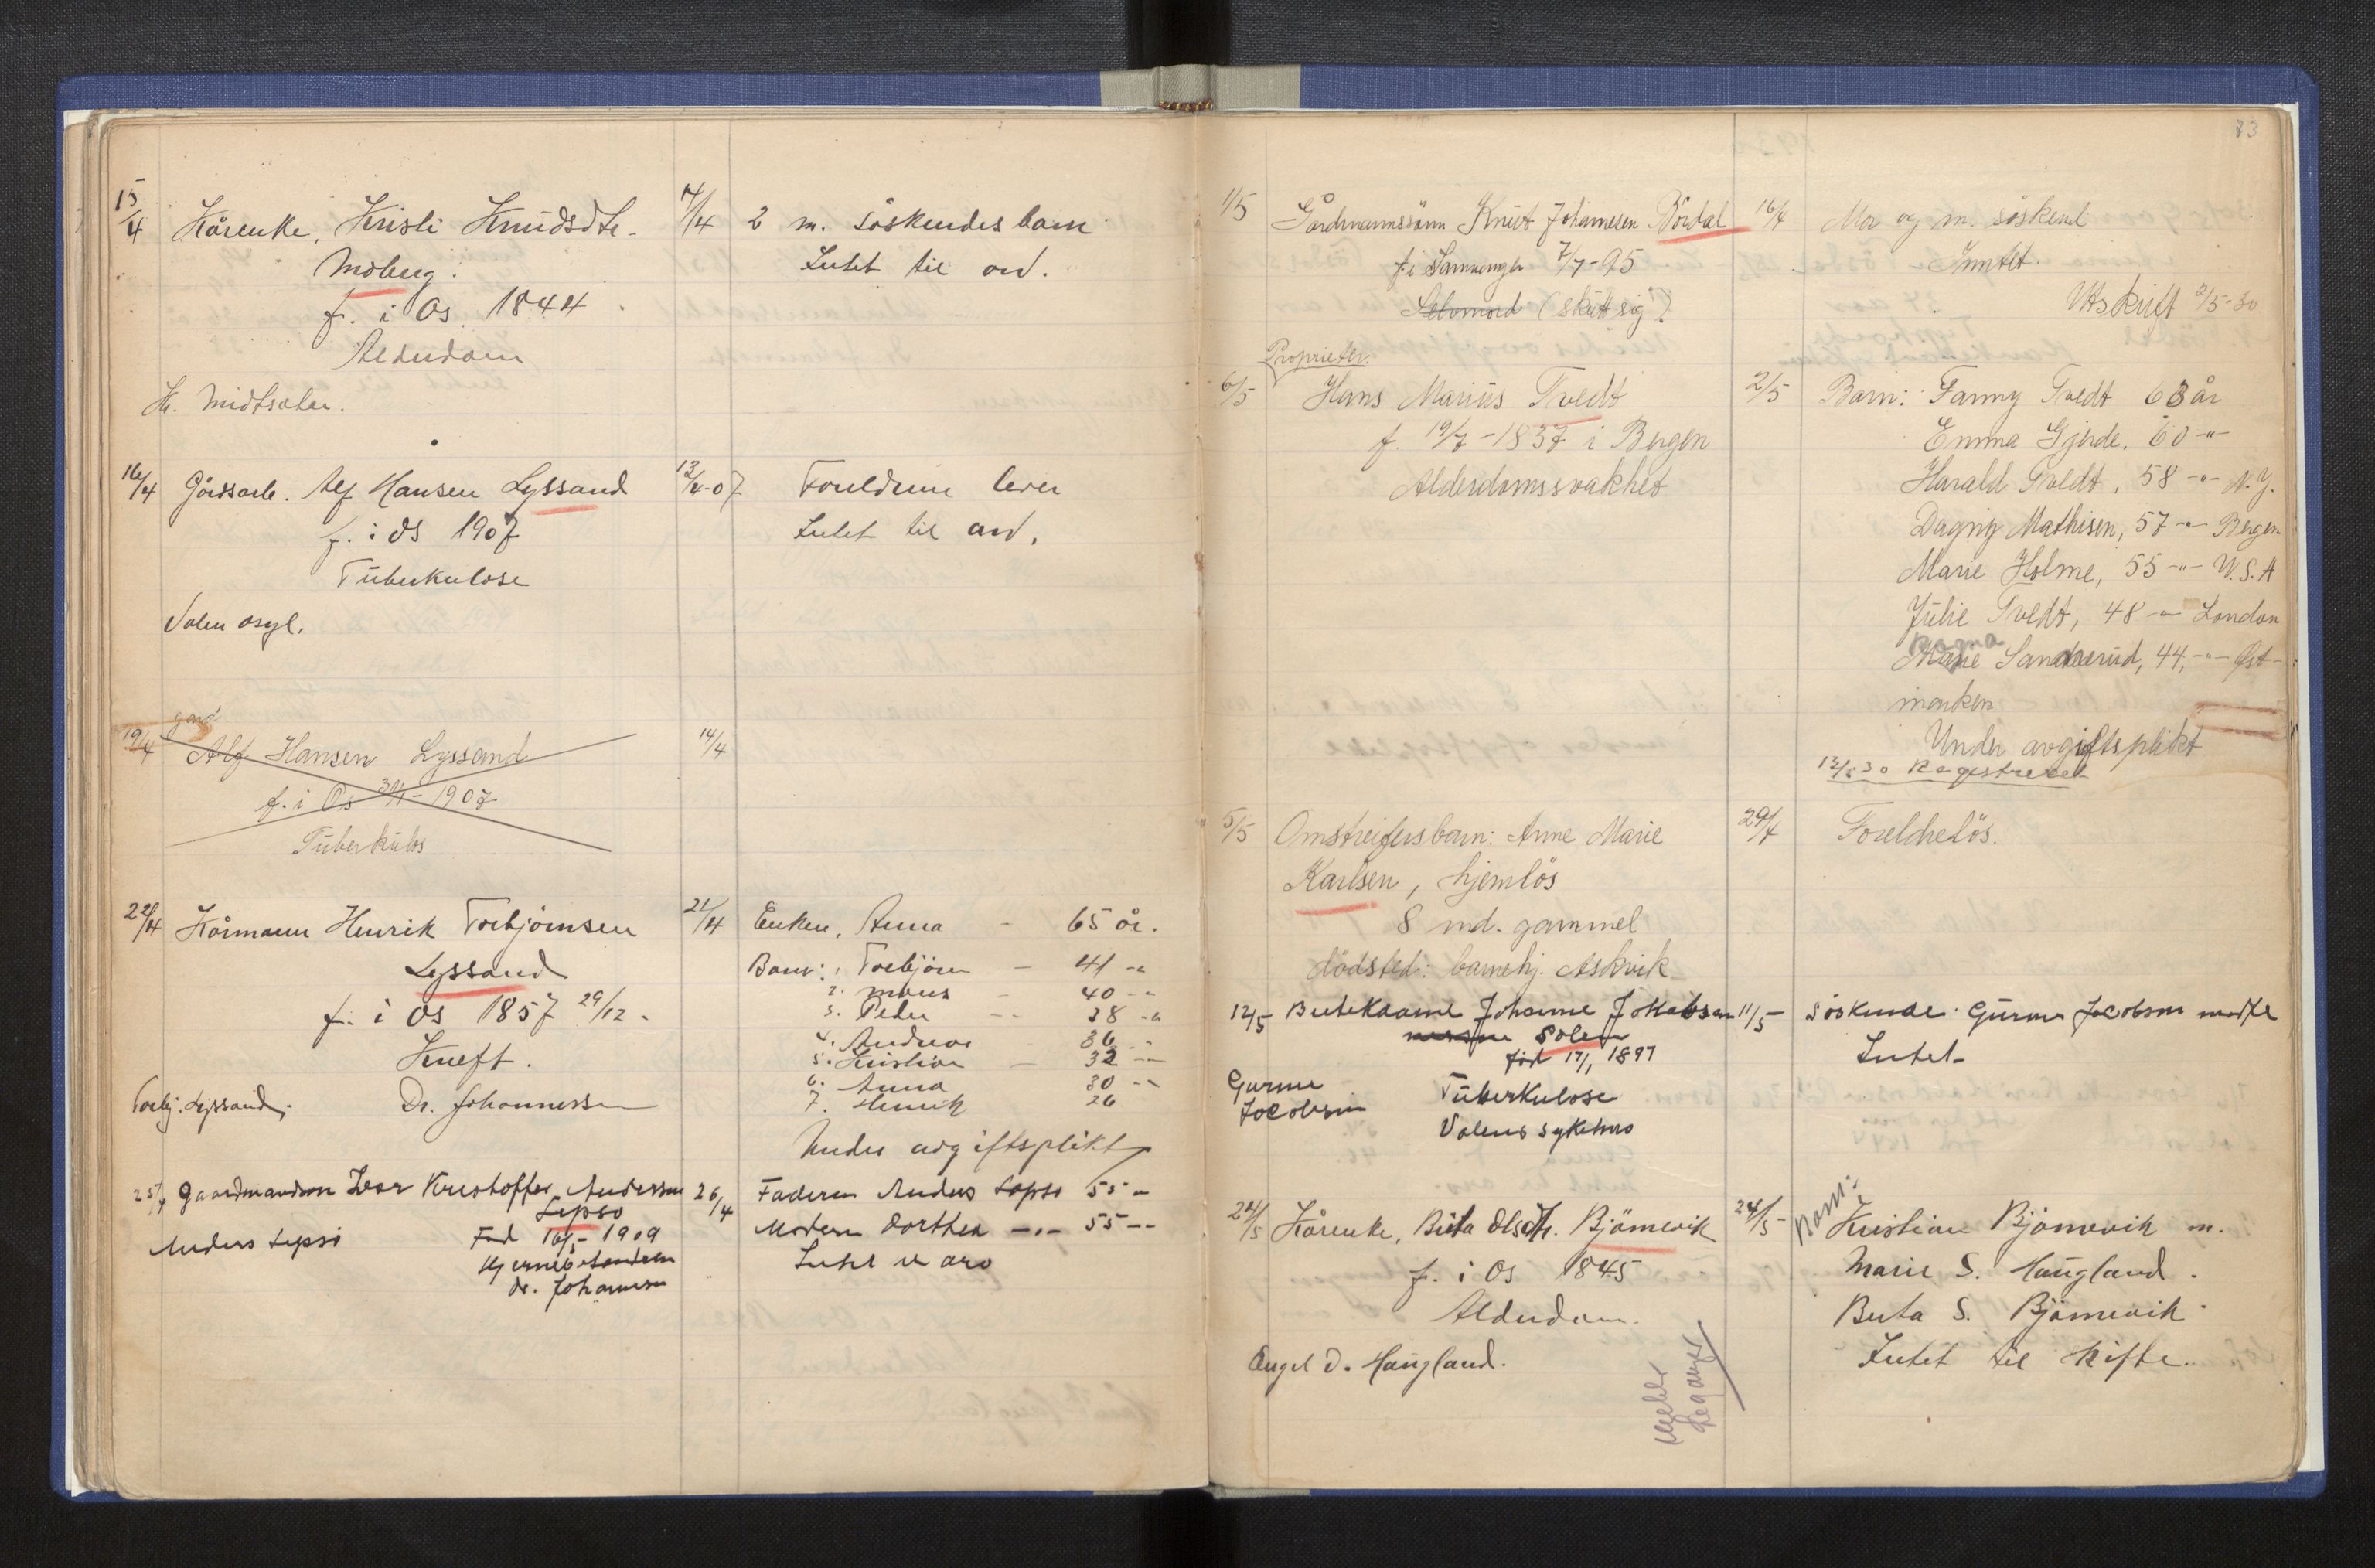 15/4 Kårenke, Kristi Knudsdtr. 14/4 2 m. søskendes barn
Moberg. Intet til arv.
f. i Os 1844
Alderdom
H. Midtsæter.
16/4 Gårdsarb. Alf Hansen Lyssand 13/4-07 Foreldrene lever
f. i Os 1907 Intet til arv.
Tuberkulose
Valen asyl.
gård
19/4 Alf Hansen Lyssand 14/4
f. i Os 3/4-1907
Tuberkulos
22/4 Kårmann Henrik Torbjørnsen 21/4 Enken, Anna - 65 år.
Lyssand Barn: 1. Torbjørn - 41 -"-
2. Mons - 40 -"-
f. i Os 1857 29/12. 3. Peder - 38 -"-
4. Andreas 36 -"-
Kreft. 5. Kristian - 32 -"-
6. Anna 30 -"-
Torbj. Lyssand. Dr. Johannessen 7. Henrik 26
Under avgiftsplikt
25/4 Gaardmandssøn Ivar Kristoffer Anderssen 26/4 Faderen Anders Lepsø 55 -"-
Lepsø Moderen Dorthea -"- 55 -"-
Anders Lepsø Fød 16/5-1909 Intet til arv
Hjernebetendelsen
Dr. Johannessen
83
1/5 Gårdmannssønn Knut Johannesen Børdal 16/4 Mor og m. søskend
f. i Samnanger 7/7-95 Inntet.
Selvmord (skutt sig) Utskrift 2/5-30
Proprietær.
6/5 Hans Marius Tvedt 2/5 Barn: Fanny Tvedt 63 år
f. 19/7-1837 i Bergen Emma Gjerde. 60 -"-
Alderdomssvakhet Harald Tvedt, 58 -"- N.Y.
Dagny Mathisen, 57 -"- Bergen
Marie Holme, 55 -"- U.S.A
Julie Tvedt, 48 -"- London
Ragna
Marie Sanderud, 44, -"- Øst-
marken
Under avgiftsplikt
12/5 30 Registreret
5/5 Omstreifersbarn: Anne Marie 29/4 Foreldreløs.
Karlsen, hjemløs
8 md. gammel
dødsted: barnehj. Askvik
12/5 Butekaane Johanne Jakobsen 11/5 Søskende: Gurine Jacobsen
Solem Intet
fød 17/1 1897
Gurine Tuberkulose
Jacobsen Valens sykehus
24/5 Kårenke, Brita Olsdtr. Bjørnevik 24/5 Barn: Kristian Bjørnevik m.
f. i Os 1845 Marie S. Haugland.
Alderdom. Berta S. Bjørnevik
Engel D. Haugland. Intet til skifte.